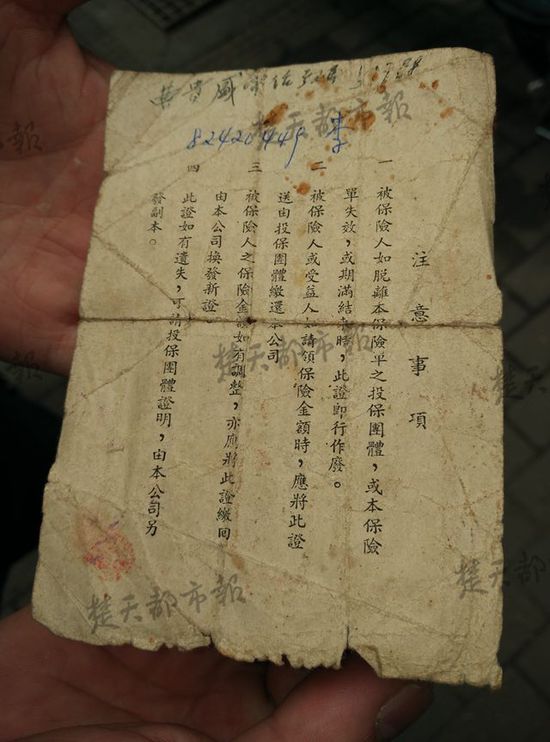 82420449 李
注意事項
一 被保險人如脫離本保險單之投保團體，或本保險
單失效，或期滿結 時，此證即行作廢。
二 被保險人或受益人 請領保險金額時，應將此證
送由投保團體繳還本公司
三 被保險人之保險金額如有調整，亦應將此證繳回
由本公司換發新證
四 此證如有遺失，可請投保團體證明，由本公司另
發副本。
楚天都市報
楚天都市報
楚天都市報
楚天都市報
市報
報